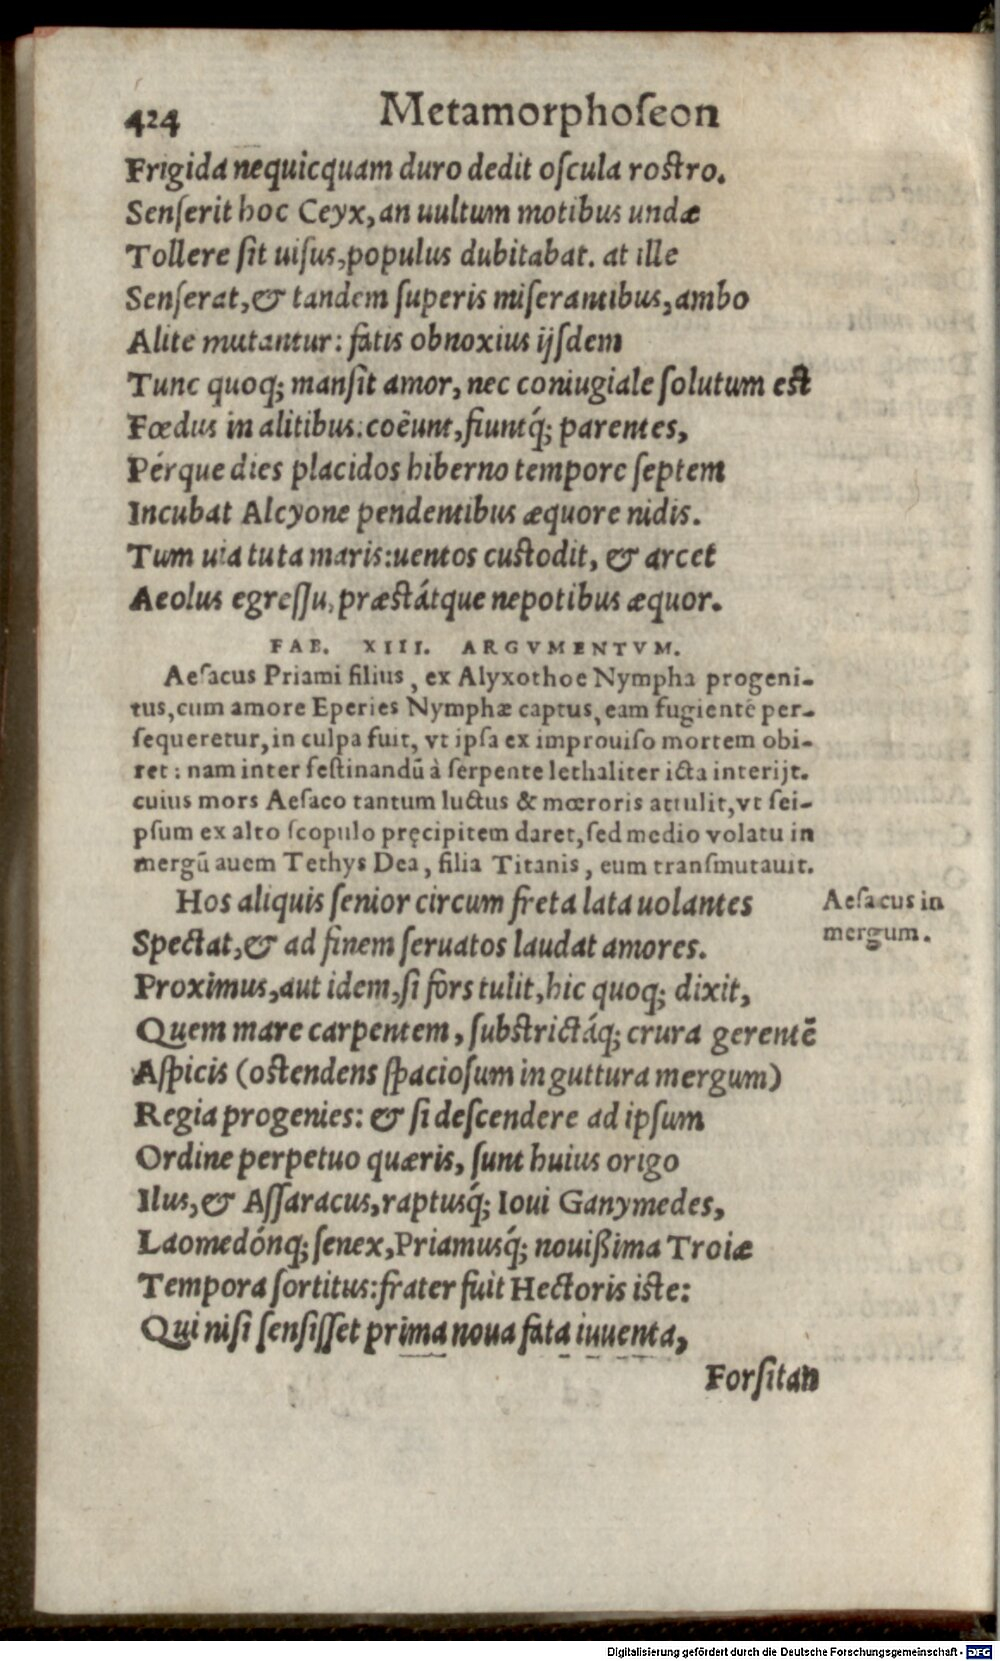 424 Metamorphoſeon
Frigida nequicquam duro dedit oſcula roſtro.
Senſerit hoc Ceyx, an uultum motibus undæ
Tollere ſit uiſus, populus dubitabat. at ille
Senſerat, & tandem ſuperis miſerantibus, ambo
Alite mutantur: fatis obnoxius ijſdem
Tunc quoq; manſit amor, nec coniugiale ſolutum eſt
Fœdus in alitibus. coëunt, fiuntq́; parentes,
Pérque dies placidos hiberno tempore ſeptem
Incubat Alcyone pendentibus æquore nidis.
Tum uia tuta maris: uentos cuſtodit, & arcet
Aeolus egreſſu, præſtátque nepotibus æquor.
FAB. XIII. ARGVMENTVM.
Aeſacus Priami filius, ex Alyxothoe Nympha progeni-
tus, cum amore Eperies Nymphæ captus, eam fugientē per-
ſequeretur, in culpa fuit, vt ipſa ex improuiſo mortem obi-
ret: nam inter feſtinandū à ſerpente lethaliter icta interijt.
cuius mors Aeſaco tantum luctus & mœroris attulit, vt ſei-
pſum ex alto ſcopulo pręcipitem daret, ſed medio volatu in
mergū auem Tethys Dea, filia Titanis, eum tranſmutauit.
Hos aliquis ſenior circum freta lata uolantes
Aeſacus in
mergum.
Spectat, & ad finem ſeruatos laudat amores.
Proximus, aut idem, ſi fors tulit, hic quoq; dixit,
Quem mare carpentem, ſubſtrictáq; crura gerentē
Aſpicis (oſtendens ſpacioſum in guttura mergum)
Regia progenies: & ſi deſcendere ad ipſum
Ordine perpetuo quæris, ſunt huius origo
Ilus, & Aſſaracus, raptusq́; Ioui Ganymedes,
Laomedónq; ſenex, Priamusq́; nouißima Troiæ
Tempora ſortitus: frater fuit Hectoris iſte:
Qui niſi ſenſiſſet prima noua fata iuuenta,
Forſitan
Digitalisierung gefördert durch die Deutsche Forschungsgemeinschaft - DFG